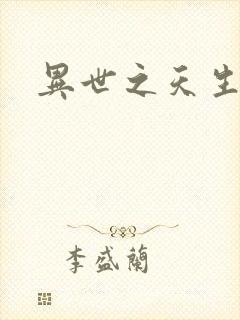 異世之天生
李盛蘭